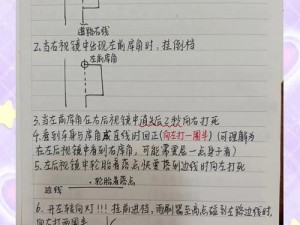 道路右线
2.当右视镜中出现左前库角时,挂倒档
左前库角
3.当左前库角在右后视镜中消失后2秒向右打死
4.看到车身与库角成直线时回正(向左打一圈半)(可理解为
在左后视镜中看到右库角,可能需要忌一点身子看)
5.左后视镜中轮胎着落点快要落到边线时向左打死
边线
轮胎着落点
6.开左转向灯!!!挂前进档,雨刷器至高点碰到左路边线时,
向右打两圈半